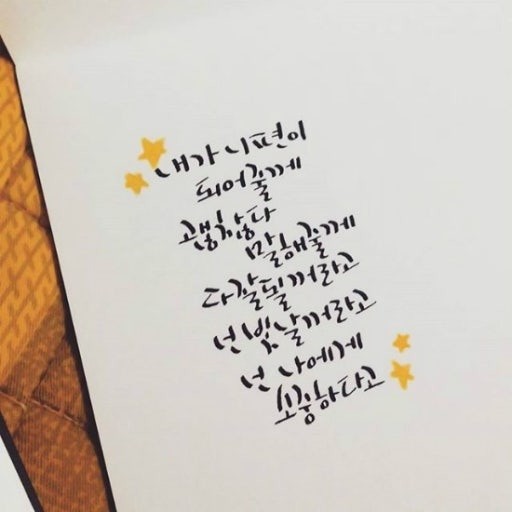 내가 니편이
되어줄께
괜찮다
말해줄께
다 잘될꺼라고
넌 빛날꺼라고
넌 나에게
소중하다고